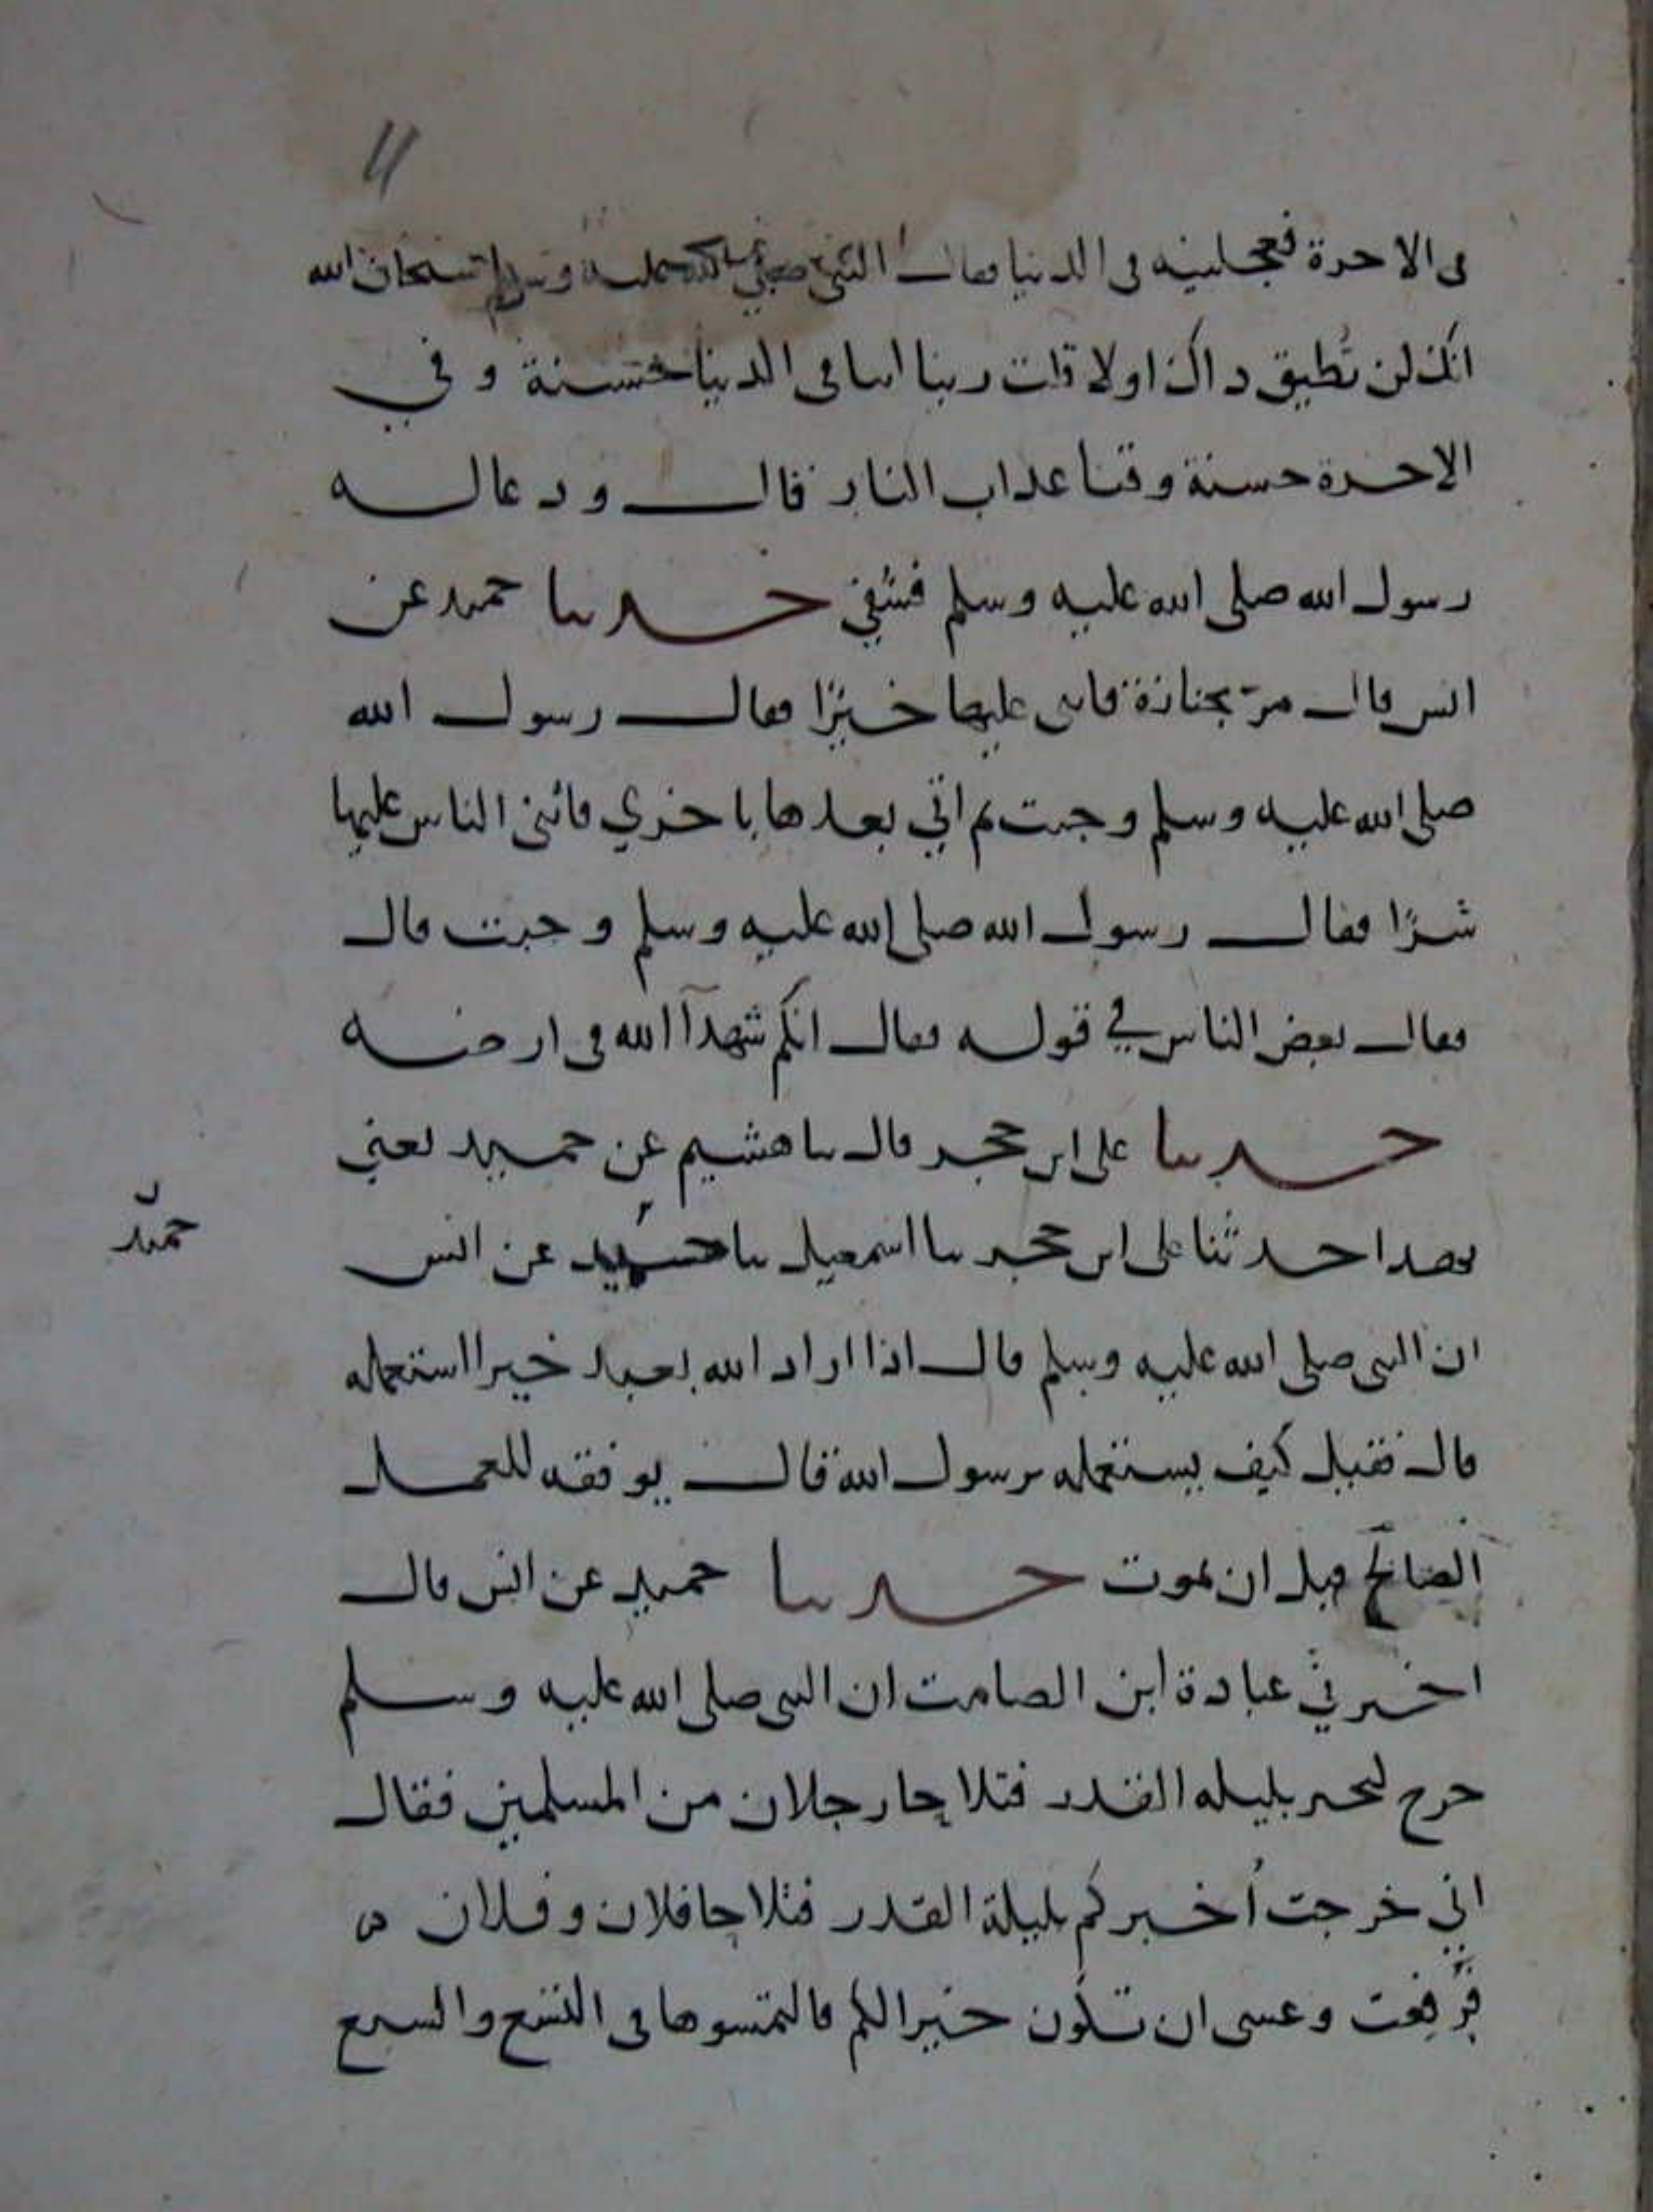 ١١
فى الاخرة فعجلنيه فى الدنيا فقال النبي صلى الله عليه وسلم سبحان الله
انك لن تُطيق ذاك اولا قلت ربنا اتنا فى الدنيا حسنة وفي
الاخرة حسنة وقنا عذاب النار قال ودعا له
رسول الله صلى الله عليه وسلم فشُفي حدثنا حميد عن
انس قال مرّ بجنازة فاثنى عليها خيرًا فقال رسول الله
صلى الله عليه وسلم وجبت ثم اتي بعدها باخري فاثنى الناس عليها
شرًا فقال رسول الله صلى الله عليه وسلم وجبت قال
فقال بعض الناس في قوله فقال انكم شهدآ الله فى ارضه
حدثنا على ابن حجر قال ثنا هشيم عن حميد يعني
بهذا حدثنا على ابن حجر ثنا اسمعيل ثنا عن انس
حميد
ان النبى صلى الله عليه وسلم قال اذا اراد الله بعبد خيرا استعمله
قال فقيل كيف يستعمله يرسول الله قال يوفقه للعمل
الصالح قبل ان يموت حدثنا حميد عن انس قال
اخبرني عبادة ابن الصامت ان النبى صلى الله عليه وسلم
خرج ليخبر بليله القدر فتلاحا رجلان من المسلمين فقال
اني خرجت أُخبركم بليلة القدر فتلاحا فلان وفلان
فرُفِعت وعسى ان تكون خيرا لكم فالتمسوها فى التسع والسبع